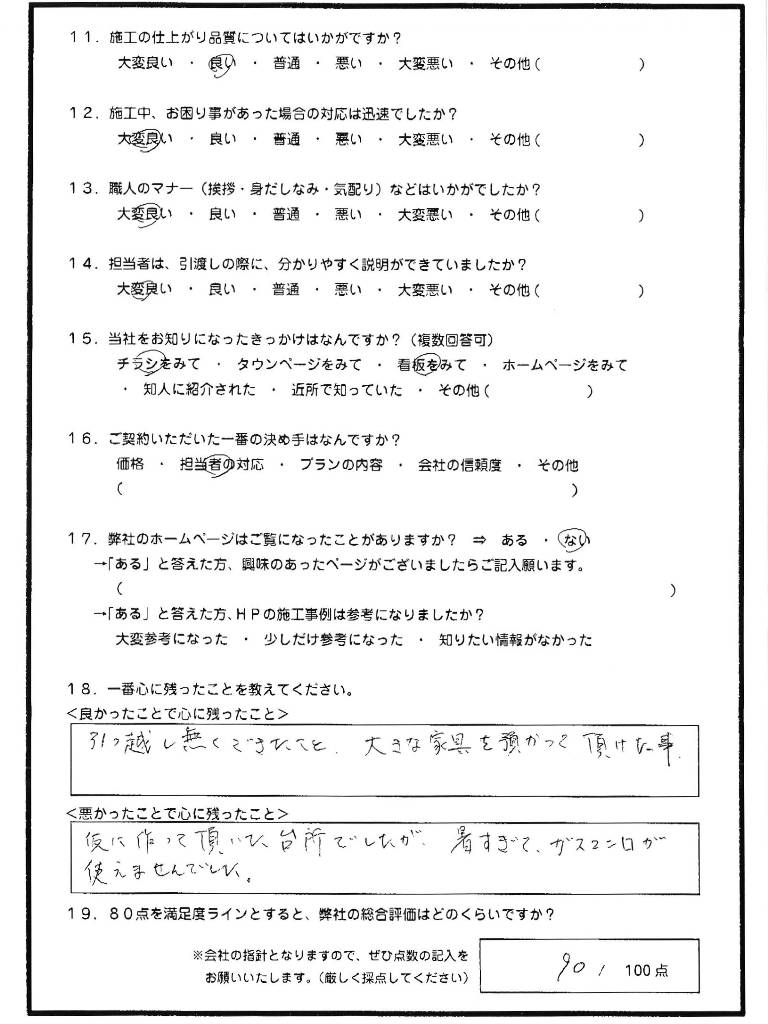 11．施工の仕上がり品質についてはいかがですか？
大変良い ・ 良い ・ 普通 ・ 悪い ・ 大変悪い ・ その他（ ）
12．施工中、お困り事があった場合の対応は迅速でしたか？
大変良い ・ 良い ・ 普通 ・ 悪い ・ 大変悪い ・ その他（ ）
13．職人のマナー（挨拶・身だしなみ・気配り）などはいかがでしたか？
大変良い ・ 良い ・ 普通 ・ 悪い ・ 大変悪い ・ その他（ ）
14．担当者は、引渡しの際に、分かりやすく説明ができていましたか？
大変良い ・ 良い ・ 普通 ・ 悪い ・ 大変悪い ・ その他（ ）
15．当社をお知りになったきっかけはなんですか？（複数回答可）
チラシをみて ・ タウンページをみて ・ 看板をみて ・ ホームページをみて
・ 知人に紹介された ・ 近所で知っていた ・ その他（ ）
16．ご契約いただいた一番の決め手はなんですか？
価格 ・ 担当者の対応 ・ プランの内容 ・ 会社の信頼度 ・ その他
（ ）
17．弊社のホームページはご覧になったことがありますか？ ⇒ ある ・ ない
→「ある」と答えた方、興味のあったページがございましたらご記入願います。
（ ）
→「ある」と答えた方、ＨＰの施工事例は参考になりましたか？
大変参考になった ・ 少しだけ参考になった ・ 知りたい情報がなかった
18．一番心に残ったことを教えてください。
＜良かったことで心に残ったこと＞
引っ越し無くできたこと、大きな家具を預かって頂けた事。
＜悪かったことで心に残ったこと＞
仮に作って頂いた台所でしたが、暑すぎて、ガスコンロが
使えませんでした。
19．80点を満足度ラインとすると、弊社の総合評価はどのくらいですか？
※会社の指針となりますので、ぜひ点数の記入を
お願いいたします。（厳しく採点してください）
90 / 100点